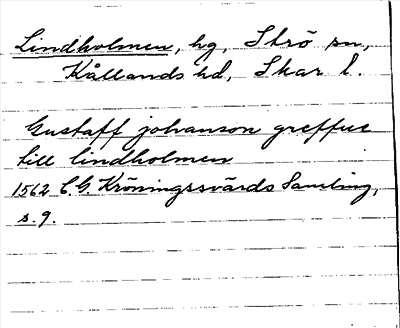 Lindholmen, hg, Strö sn,
Kållands hd, Skar l.
Gustaff johanson greffue
till lindholmen
1562 C.G. Kröningssvärds Samling,
s. 9.